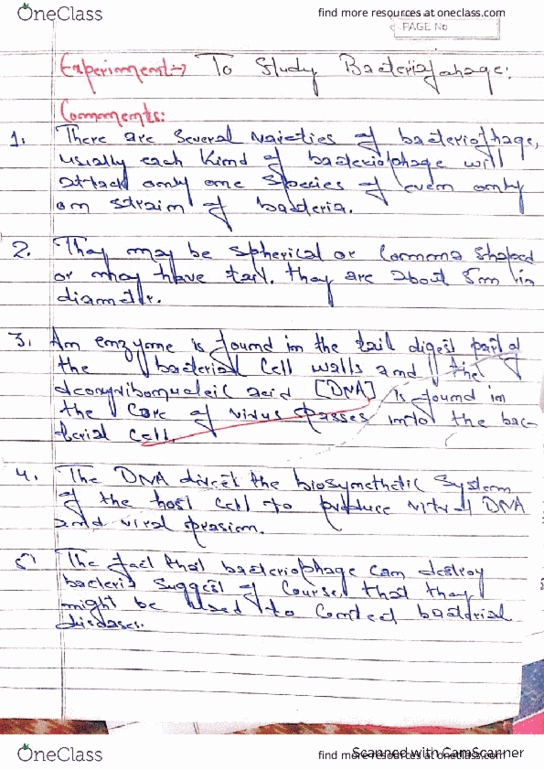 OneClass
find more resources at oneclass.com
PAGE No
Experiment→ To Study Bacteriophage:
Comments:
1. There are several vaieties of bacteriophage,
usually each kind of bacteriophage will
attack only one species of even only
on strain of bacteria.
2. They may be spherical or Comma shaped
or may have tail. they are about 5m in
diamete.
3. An enzyme is found in the tail digest part of
the bacterial Cell walls and the
deoxyribonucleic acid [DNA] is found in
the Core of virus passes into the bac-
terial cell.
4. The DNA direct the biosynthetic System
of the host cell to produce DNA
and viral
5. The fact that bacteriophage can destroy
bacteria suggest of Course that they
might be used to Control bacterial
diseases.
OneClass
find more resources at oneclass.com
Scanned with CamScanner